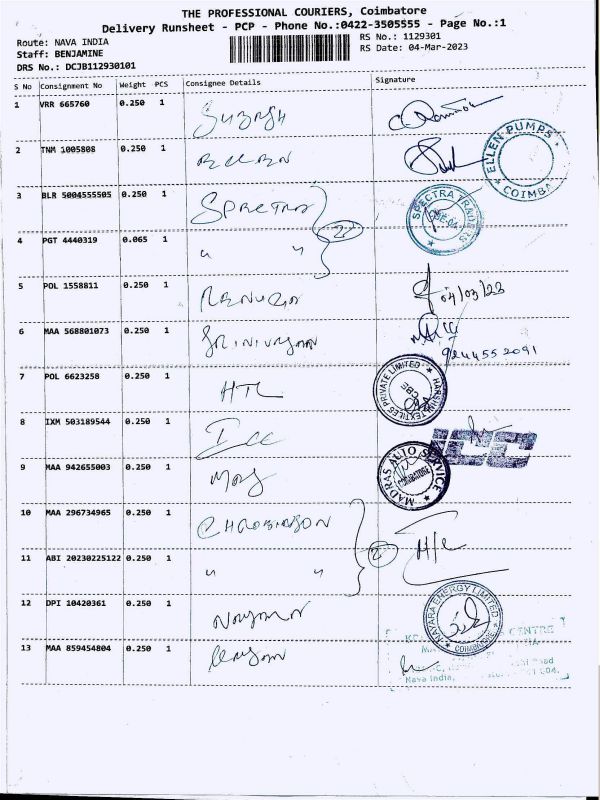 THE PROFESSIONAL COURIERS, Coimbatore
Delivery Runsheet - PCP - Phone No.:0422-3505555 - Page No.:1
Route: NAVA INDIA
RS No.: 1129301
Staff: BENJAMINE
RS Date: 04-Mar-2023
DRS No.: DCJB112930101
S No Consignment No Weight PCS Consignee Details Signature
1 VRR 665760 0.250 1 SURESH
2 TNM 1005808 0.250 1 ELLEN
ELLEN PUMPS
COIMBA
3 BLR 5004555505 0.250 1 SPECTRA
SPECTRA
CBE-04
2
4 PGT 4440319 0.065 1 " "
5 POL 1558811 0.250 1 RENUGA
04/03/23
6 MAA 568801073 0.250 1 SRINIVASAN
9244552091
7 POL 6623258 0.250 1 HTL
HARSHNI TEXTILES PRIVATE LIMITED
CBE
8 IXM 503189544 0.250 1 ICC
ICC
9 MAA 942655003 0.250 1 MAS
MADRAS AUTO SERVICE
COIMBATORE
10 MAA 296734965 0.250 1 CHROBINSON
2
H/c
11 ABI 20230225122 0.250 1 " "
12 DPI 10420361 0.250 1
NAVARA ENERGY LIMITED
COIMBATORE
13 MAA 859454804 0.250 1
CENTRE
Road
Nava India,